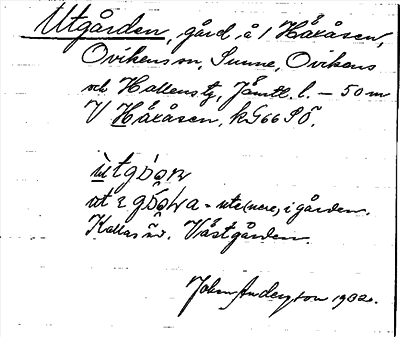 Utgården, gård, å 1 Håkåsen,
Ovikens sn, Sunne, Ovikens
och Hallens tg, Jämtl. l. – 50 m
V Håkåsen, k G66 SÖ.
ùtgo̯ɒn
ut i - ute(nere) i gården.
Kallas äv. Västgården.
John Anderzson 1932.